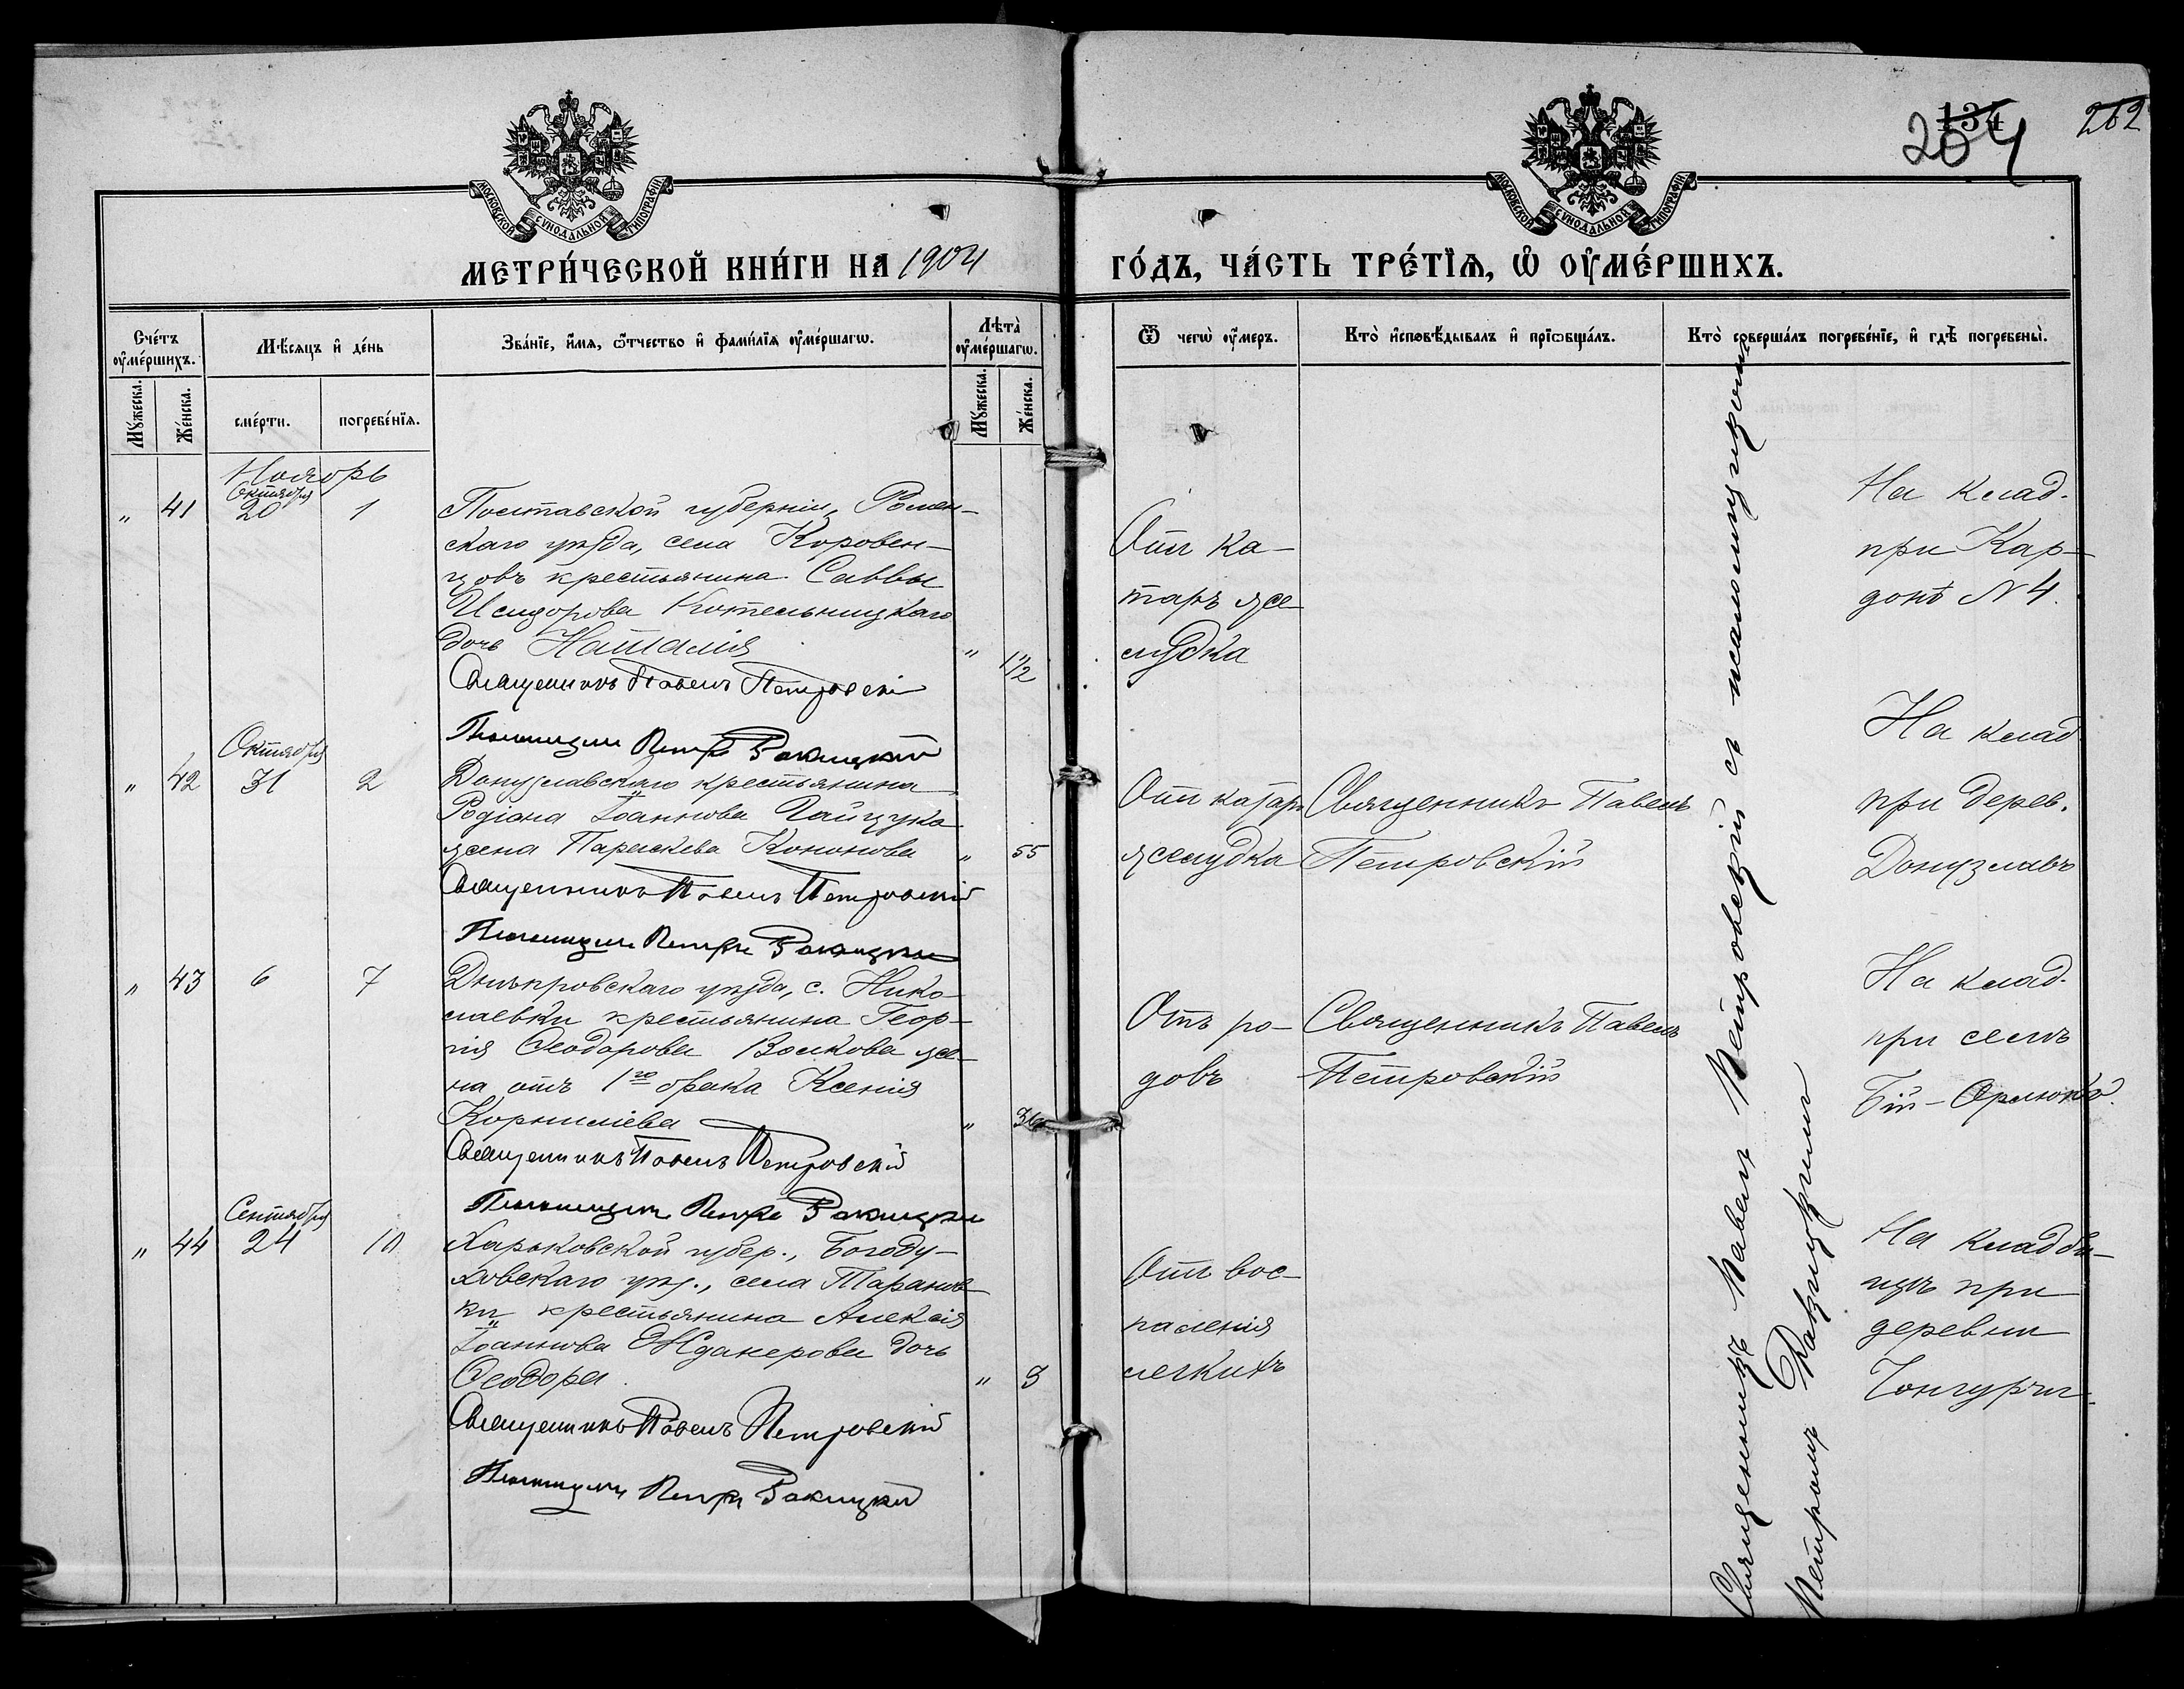 134
204
262
МОСКОВСКОЙ СѴНОДАЛЬНОЙ ТИПОГРАФІИ
МОСКОВСКОЙ СѴНОДАЛЬНОЙ ТИПОГРАФІИ
МЕТРИ́ЧЕСКОЙ КНИ́ГИ НА 1904 ГО́ДЪ, ЧА́СТЬ ТРЕ́ТІѦ, Ѽ ОУ҆МЕ́РШИХЪ.
Сче́тъ оу҆ме́ршихъ.
Мѣ́сяцъ и҆ де́нь
Зва́нїе, и҆́мѧ, ѻ҆́тчество и҆ фами́лїѧ оу҆ме́ршагѡ.
Лѣта̀ оу҆ме́ршагѡ.
Мꙋ́жеска.
Же́нска.
сме́рти.
погребе́нїѧ.
Мꙋ́жеска.
Же́нска.
Ѿ чегѡ̀ оу҆́меръ.
Кто̀ и҆сповѣ́дывалъ и҆ прїѡбща́лъ.
Кто̀ соверша́лъ погребе́нїе, и҆ гдѣ̀ погребены̀.
Ноябрь
Октября
" 41 20 1
Полтавской губерніи, Ромен-
скаго уѣзда, села Коровен-
цовъ крестьянина Саввы
Исидорова Котельницкаго
дочь Наталія " 1 1/2
Священникъ Павелъ Петровскій
Псаломщикъ Петръ Ракицкій
Отъ ка-
таръ же
лудка
На клад.
при Кар-
донѣ N 4.
Октября
" 42 31 2
Донузлавскаго крестьянина
Родіона Іоаннова
жена Параскева Кононова " 55
Священникъ Павелъ Петровскій
Псаломщикъ Петръ Ракицкій
Отъ катара
желудка
Священникъ Павелъ
Петровскій
На клад.
при дерев.
Донузлавъ
" 43 6 7
Днѣпровскаго уѣзда, с. Нико-
лаевки крестьянина Геор-
гія Ѳеодорова Волкова же-
на отъ 1го брака Ксенія
Корниліева " 36
Священникъ Павелъ Петровскій
Псаломщикъ Петръ Ракицкій
Отъ ро-
довъ
Священникъ Павелъ
Петровскій
На клад.
при селѣ
Бій-Орлюкѣ.
Сентября
" 44 24 10
Харьковской губер., Богоду-
ховскаго уѣз., села Таранов-
ки крестьянина Алексія
Іоаннова дочь
Ѳеодора. "
Священникъ Павелъ Петровскій
Псаломщикъ Петръ Ракицкій
Отъ вос-
паленія
легкихъ
На кладби-
щѣ при
деревни
Священникъ Павелъ Петровскій съ псаломщикомъ
Петромъ Ракицкимъ